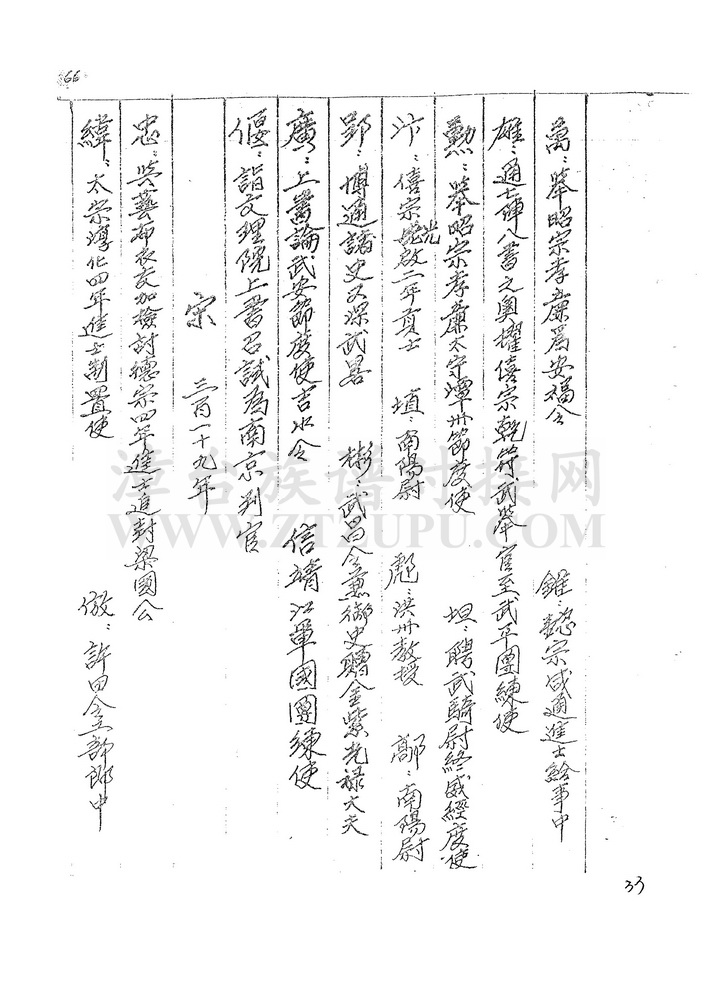 66
萬：舉昭宗孝廉為安福令　錐：懿宗咸通進士給事中
雄：通七陣八書之奧擢僖宗乾符武舉官至武平團練使
勳：舉昭宗孝廉太守潭州節度使　坦：聘武騎尉終威經度使
汴：僖宗光啟二年貢士　塤：南陽尉　彪：洪州教授　鄗：南陽尉
郢：博通諸史又深武畧　彬：武昌令兼御史贈金紫光祿大夫
廣：上書論武安節度使吉水令　信靖江軍國團練使
偃：詣文理院上書召試為南京判官
宋　三百一十九年
忠：吳藝布衣交加檢討德宗四年進士追封梁國公
緯：太宗淳化四年進士制置使　倣：許田令工部郎中
33
漳台族谱对接网
WWW.ZTZUPU.COM